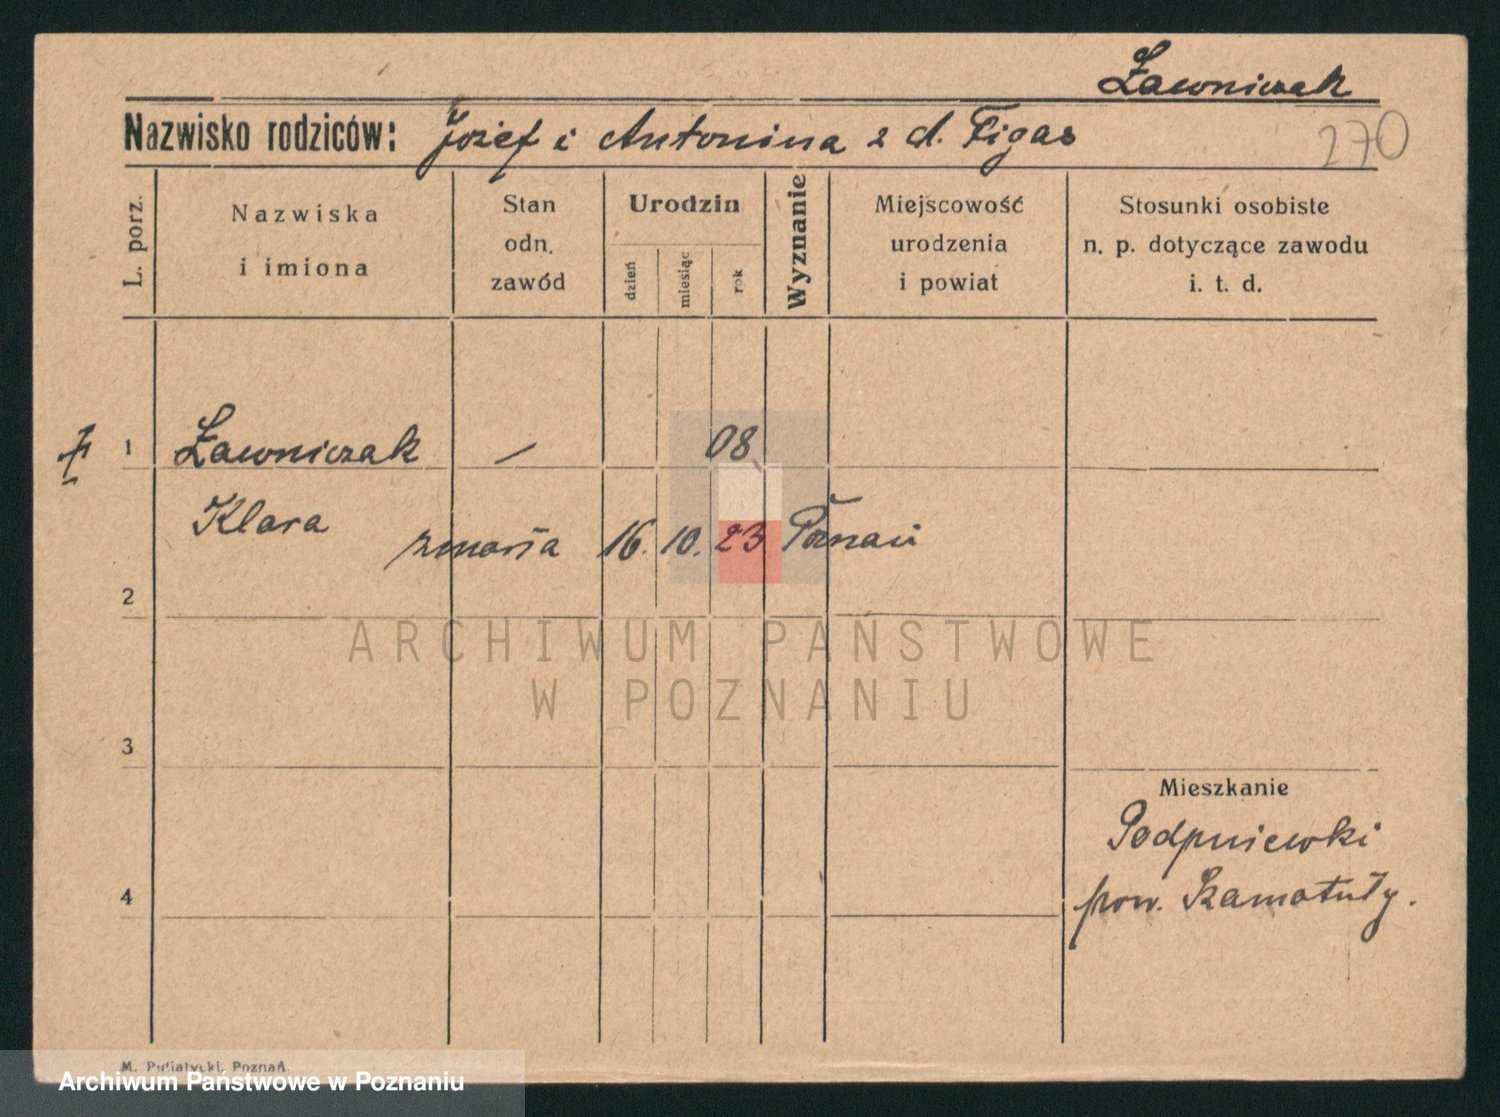 Ławniczak
Nazwisko rodziców: Józef i Antonina z d. Figas
270
L. porz.
Nazwiska
i imiona
Stan
odn.
zawód
Urodzin
dzień
miesiąc
rok
Wyznanie
Miejscowość
urodzenia
i powiat
Stosunki osobiste
n. p. dotyczące zawodu
i. t. d.
1 Ławniczak – 08
Klara
zmarła 16. 10. 23 Poznań
2
ARCHIWUM PAŃSTWOWE
W POZNANIU
3
Mieszkanie
Podpniewki
4
pow. Szamotuły.
M. Putiatycki, Poznań.
Archiwum Państwowe w Poznaniu